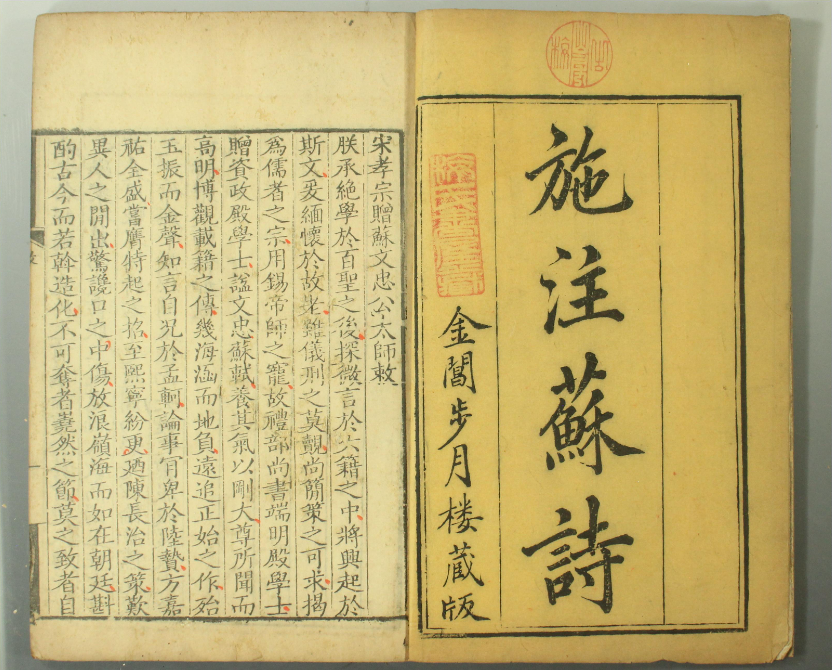 施注蘇詩
金閶步月楼蔵版
宋孝宗贈蘇文忠公太師敕
朕承絶學於百聖之後探微言於六籍之中將興起於
斯文爰緬懷於故老雖儀刑之莫覿尚簡策之可求揭
爲儒者之宗用錫帝師之寵故禮部尚書端明殿學士
贈資政殿學士諡文忠蘇軾養其氣以剛大尊所聞而
高明博觀載籍之傳幾海涵而地負遠追正始之作殆
玉振而金聲知言自況於孟軻論事肯卑於陸贄方嘉
祐全盛嘗膺特起之招至熙寧紛更廼陳長治之策歎
異人之間出驚讒口之中傷放浪嶺海而如在朝廷斟
酌古今而若斡造化不可奪者嶢然之節莫之致者自